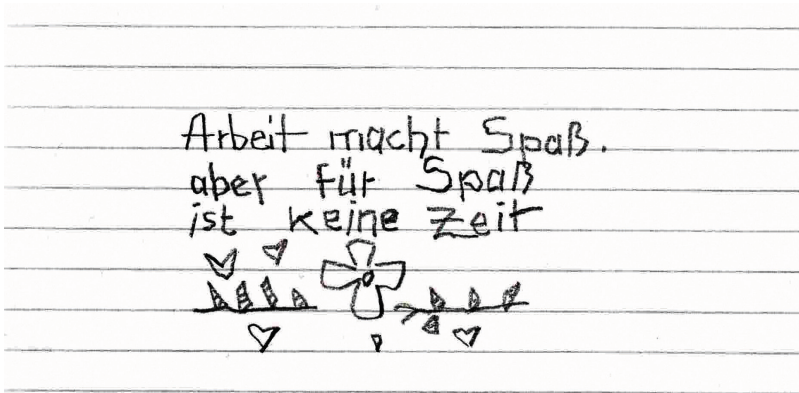 Arbeit macht Spaß.
aber für Spaß
ist keine Zeit